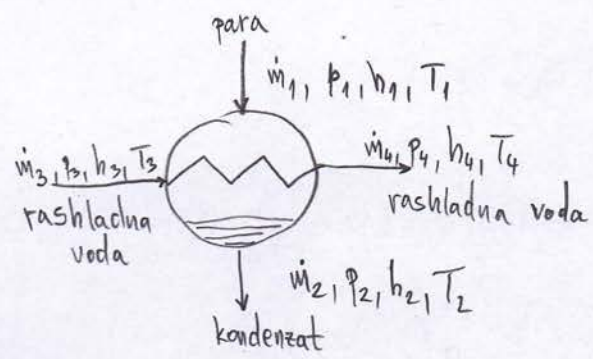 para
ṁ1, p1, h1, T1
ṁ3, p3, h3, T3
rashladna
voda
ṁ4, p4, h4, T4
rashladna voda
ṁ2, p2, h2, T2
kondenzat